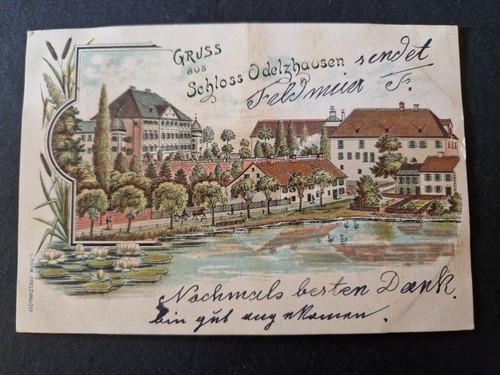 Gruss
aus
Schloss Odelzhausen sendet
Feldmeier F.
Nochmals besten Dank.
bin gut angekomen.